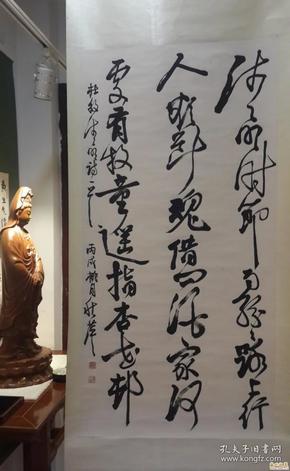 清明时节雨纷纷路上行
人欲断魂借问酒家何
处有牧童遥指杏花村
杜牧清明诗一
丙戌
孔夫子旧书网